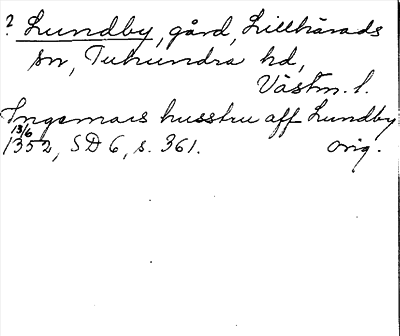 ? Lundby, gård, Lillhärads
sn, Tuhundra hd,
Västm. l.
Ingemars husstru aff Lundby
13/6
1352, SD 6, s. 361. orig.